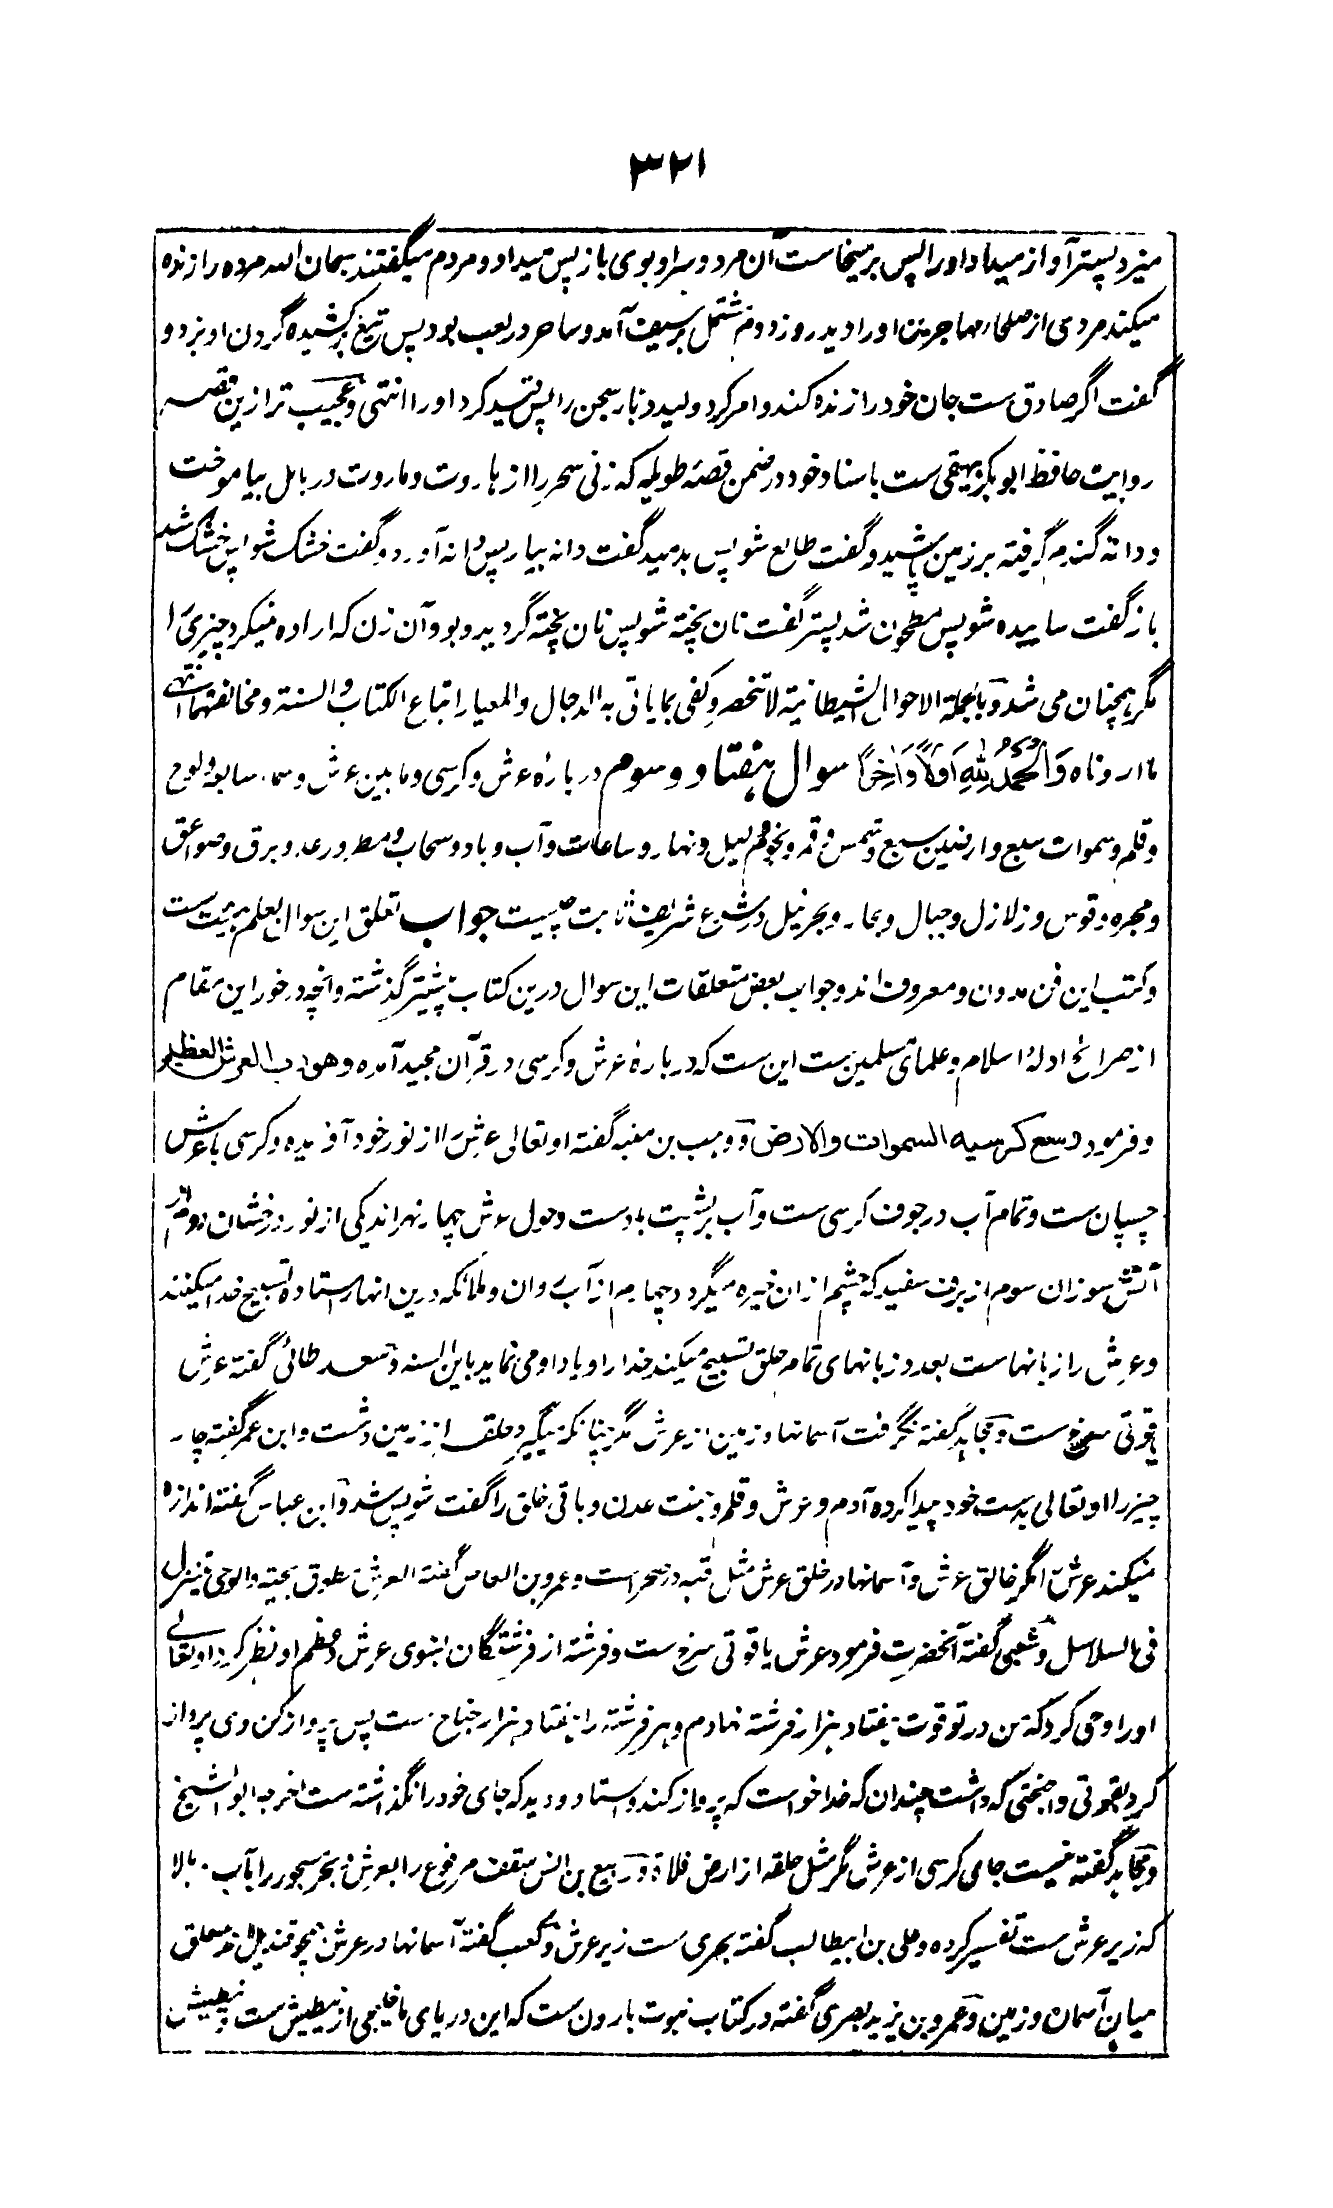 ۳۲۱
میزد پستر آواز میداد او را پس برمیخاست آن مرد و سر او بوی باز پس میداد و مردم میگفتند سبحان الله مرده را زنده
میکند مردمی از صلحاء مهاجرین او را دید روز دوم مشتمل بر سیف آمد و ساحر در لعب بود پس تیغ برکشیده گردن او بزد و
گفت اگر صادق ست جان خود را زنده کند و امر کرد ولید دینار سجن را پس قید کرد او را انتهی و عجیب تر ازین قصه
روایت حافظ ابو بکر بیهقی ست باسناد خود در ضمن قصهٔ طویله که زنی سحر را از هاروت و ماروت در بابل بیاموخت
و دانه گندم گرفته بر زمین پاشید و گفت طالع شو پس بدمید گفت دانه بیار پس دانه آورد و گفت خشک شو پس خشک شد
باز گفت ساییده شو پس مطحون شد پستر گفت نان پخته شو پس نان پخته گردید و بود آن زن که اراده نمیکرد چیزی را
مگر همچنان می شد و بالجمله الاحوال الشیطانیة لا تنحصر و کفی بما یاتی به الدجال والمعیار اتباع الکتاب والسنة و مخالفتهما انتهی
ما اردناه وَالْحَمْدُ لِلّٰهِ اَوَّلاً وَاٰخِراً سوال هفتاد و سوم درباره عرش و کرسی و مابین عرش و سماء سابعه و لوح
و قلم و سموات سبع و ارضین سبع و شمس و قمر و نجوم و لیل و نهار و ساعات و آب و باد و سحاب و مطر و رعد و برق و صواعق
و مجره و قوس و زلازل و جبال و بحار و بحر نیل در شرع شریف ثابت چیست جواب تعلق این سوال بعلم هیئت ست
و کتب این فن مدون و معروف اند و جواب بعض متعلقات این سوال درین کتاب پیشتر گذشته و آنچه درخور این مقام
از صرائح ادلهٔ اسلام و علمای مسلمین ست این ست که درباره عرش و کرسی در قرآن مجید آمده وهو رب العرش العظیم
و فرمود وسع کرسیه السموات والارض و وهب بن منبه گفته او تعالی عرش را از نور خود آفریده و کرسی با عرش
چسپان ست و تمام آب در جوف کرسی ست و آب بر پشت باد ست و حول عرش چهار نهر اند یکی از نور درخشان دوم از
آتش سوزان سوم از برف سفید که چشم ازان خیره میگردد چهارم از آب روان و ملائکه درین انهار استاده تسبیح خدا میکنند
و عرش را زبانهاست بعدد زبانهای تمام خلق تسبیح میکند خدا را و یاد او می نماید باین السنه و سعد طائی گفته عرش
یاقوتی سرخ ست و مجاهد گفته نگرفت آسمانها و زمین از عرش مگر چنانکه میگیرد حلقه از زمین دشت و ابن عمر گفته چار
چیز را او تعالی بدست خود پیدا کرده آدم و عرش و قلم و جنت عدن و باقی خلق را گفت شو پس شد و ابن عباس گفته اندازه
نمیکند عرش را مگر خالق عرش و آسمانها در خلق عرش مثل قبه در صحراست و عمرو بن العاص گفته العرش مطوق بحیة والوحی ینزل
فی السلاسل و شعبی گفته آنحضرت فرمود عرش یاقوتی سرخ ست و فرشته از فرشتگان بسوی عرش و عظم او نظر کرد او تعالی
او را وحی کرد که من در تو قوت هفتاد هزار فرشته نهادم و هر فرشته را هفتاد هزار جناح ست پس پرواز کن وی پرواز
کرد بقوتی و اجنحتی که داشت چندان که خدا خواست که پرواز کند و استاد و دید که جای خود را نگذاشته ست اخرجه ابو الشیخ
و مجاهد گفته نیست جای کرسی از عرش مگر مثل حلقه از ارض فلاة و ربیع بن انس سقف مرفوع را بعرش و بحر مسجور را بآب بالا
که زیر عرش ست تفسیر کرده و علی بن ابیطالب گفته بحری ست زیر عرش و کعب گفته آسمانها در عرش همچو قندیل اند معلق
میان آسمان و زمین و عمرو بن یزید بصری گفته در کتاب نبوت هارون ست که این دریای ما خلیجی از نیطیش ست و نیطیش